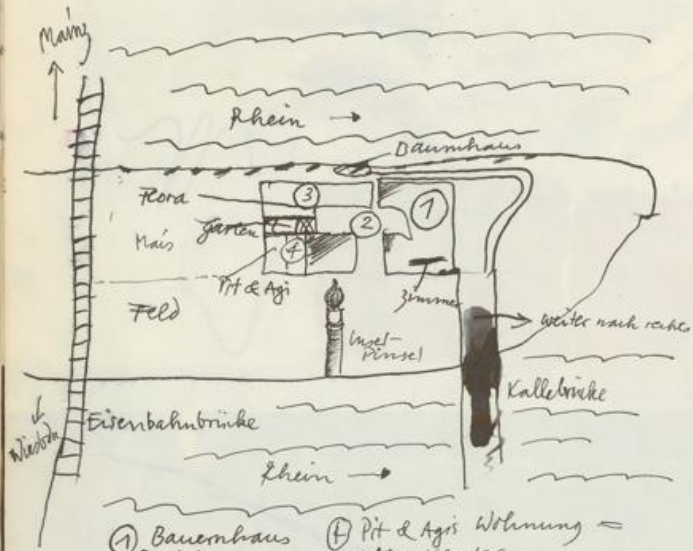 Mainz
Rhein →
Baumhaus
Flora
③
①
Garten
②
Mais
④
Pit & Agi
Zimmer
Feld
Insel-
Pinsel
weiter nach rechts
Kallebrücke
Eisenbahnbrücke
Rhein →
① Bauernhaus
④ Pit & Agis Wohnung =